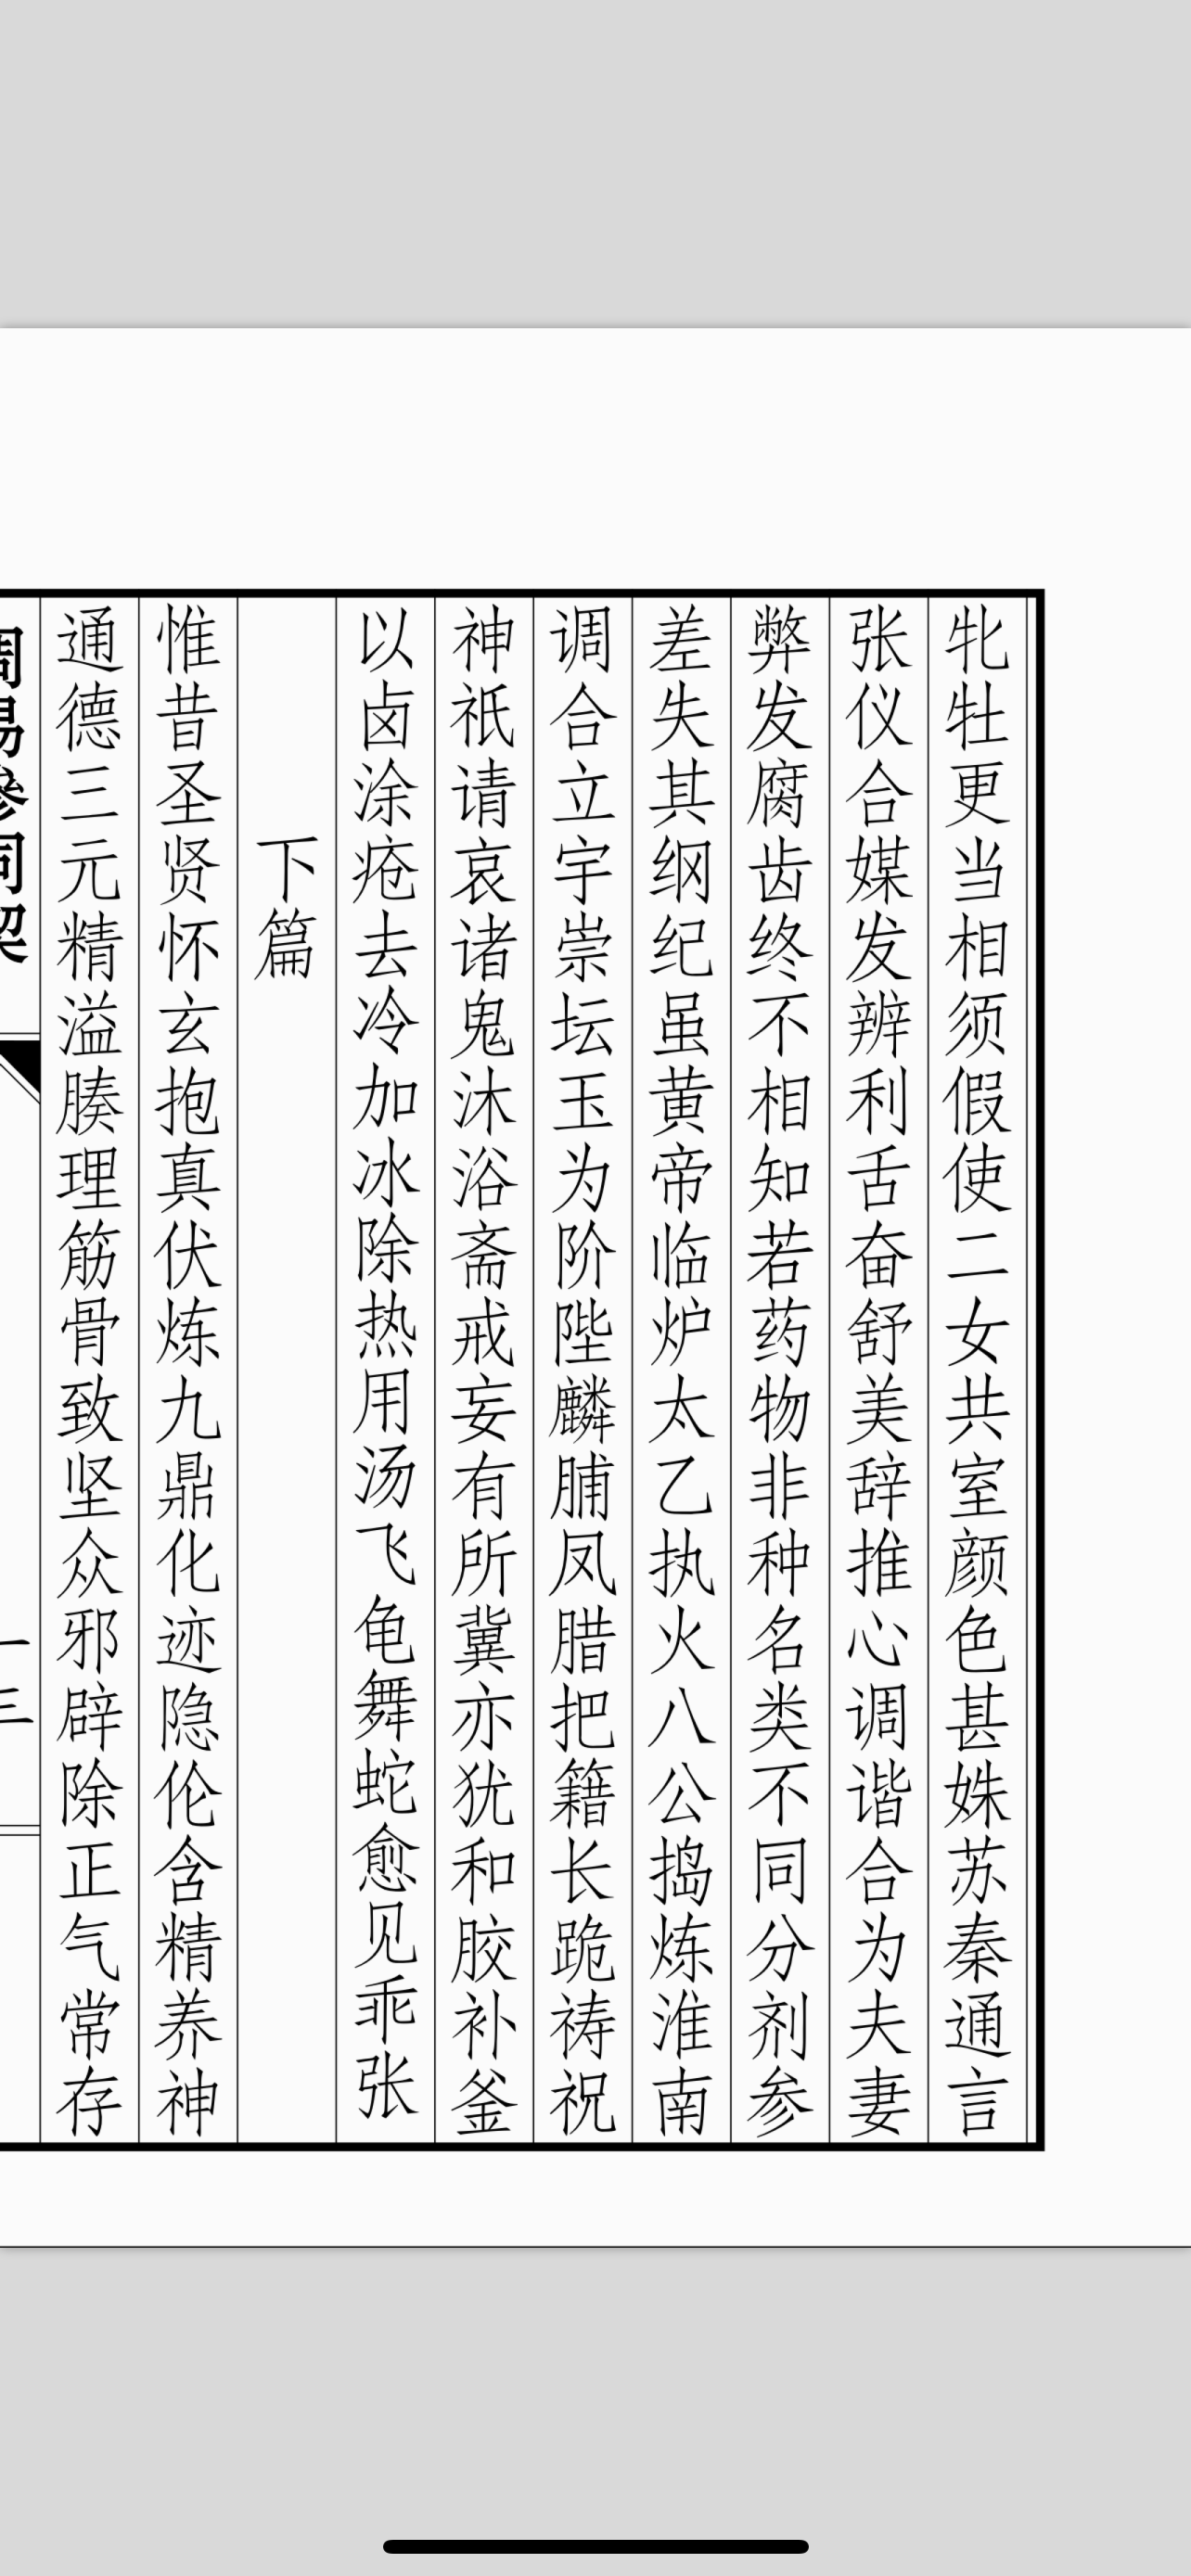 牝牡更当相须假使二女共室颜色甚姝苏秦通言
张仪合媒发辨利舌奋舒美辞推心调谐合为夫妻
弊发腐齿终不相知若药物非种名类不同分剂参
差失其纲纪虽黄帝临炉太乙执火八公捣炼淮南
调合立宇崇坛玉为阶陛麟脯凤腊把籍长跪祷祝
神祇请哀诸鬼沐浴斋戒妄有所冀亦犹和胶补釜
以卤涂疮去冷加冰除热用汤飞龟舞蛇愈见乖张
下篇
惟昔圣贤怀玄抱真伏炼九鼎化迹隐伦含精养神
通德三元精溢腠理筋骨致坚众邪辟除正气常存
周易参同契
十三